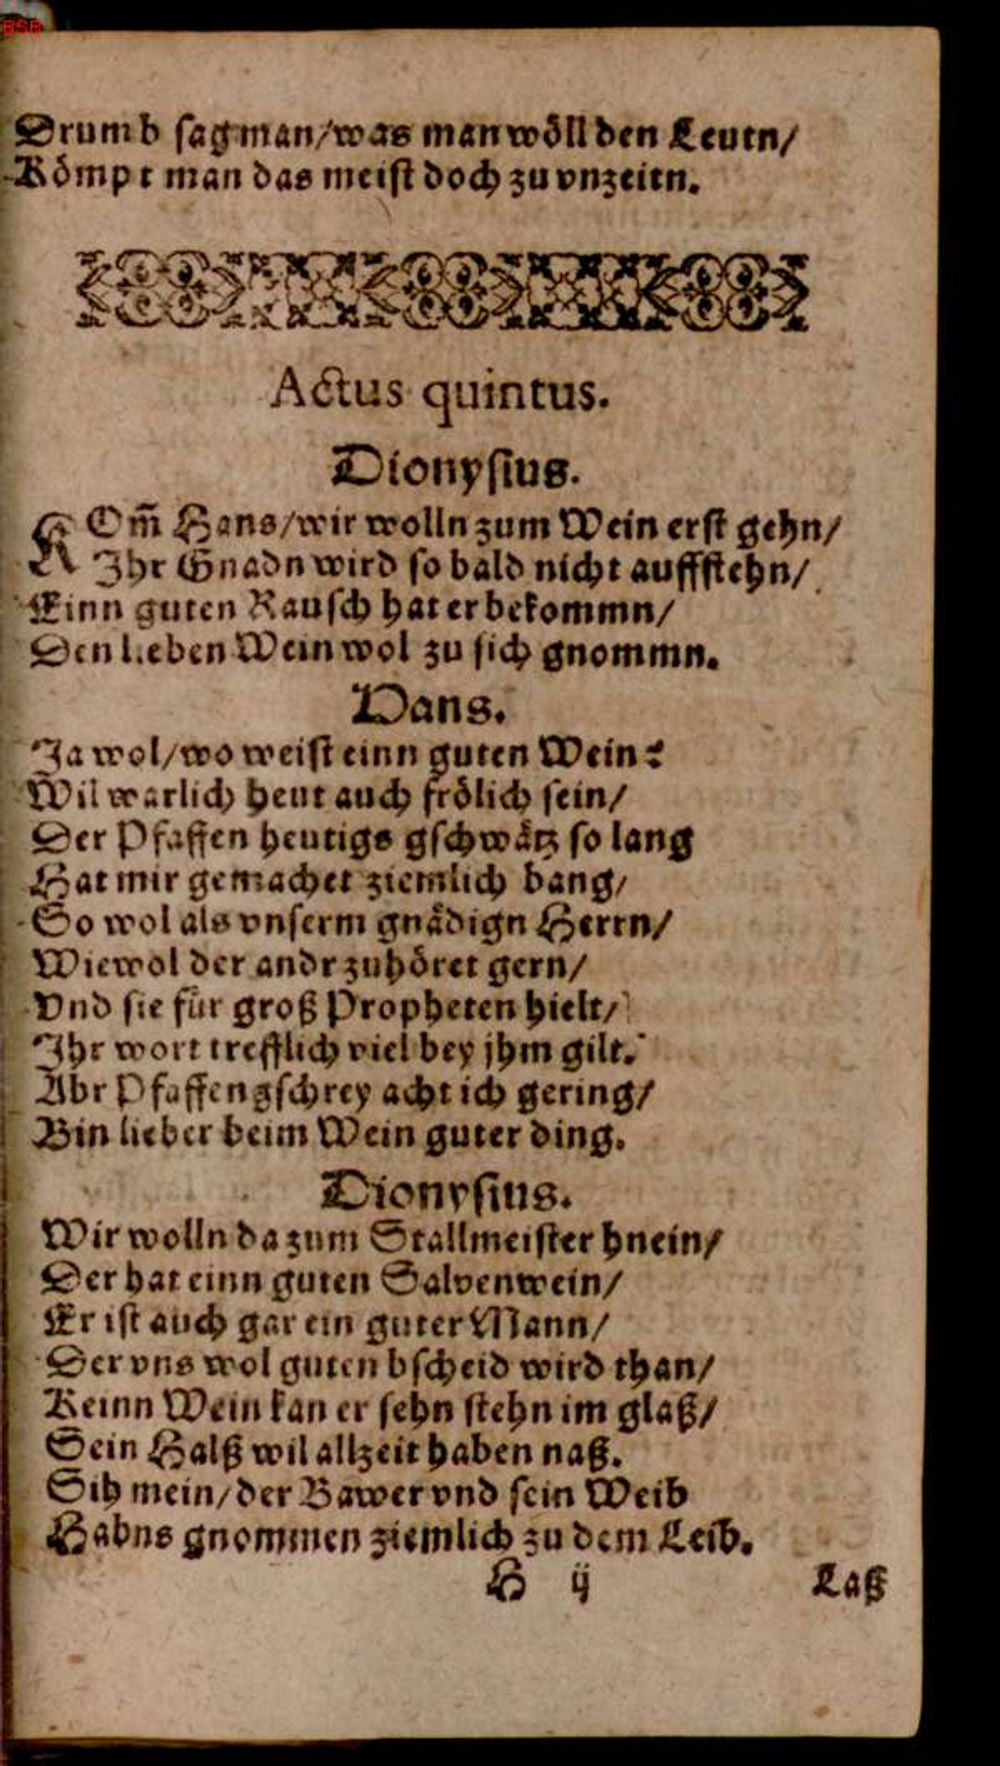 BSB
Drumb sag man/was man wöll den Leutn/
Kömpt man das meist doch zu vnzeitn.
Actus quintus.
Dionysius.
KOm̃ Hans/wir wolln zum Wein erst gehn/
Ihr Gnadn wird so bald nicht auffstehn/
Einn guten Rausch hat er bekommn/
Den lieben Wein wol zu sich gnommn.
Hans.
Ja wol/wo weist einn guten Wein?
Wil warlich heut auch frölich sein/
Der Pfaffen heutigs gschwätz so lang
Hat mir gemachet ziemlich bang/
So wol als vnserm gnädign Herrn/
Wiewol der andr zuhöret gern/
Vnd sie für groß Propheten hielt/
Ihr wort trefflich viel bey jhm gilt.
Abr Pfaffengschrey acht ich gering/
Bin lieber beim Wein guter ding.
Dionysius.
Wir wolln da zum Stallmeister hnein/
Der hat einn guten Salvenwein/
Er ist auch gar ein guter Mann/
Der vns wol guten bscheid wird than/
Keinn Wein kan er sehn stehn im glaß/
Sein Halß wil allzeit haben naß.
Sih mein/der Bawer vnd sein Weib
Habns gnommen ziemlich zu dem Leib.
H ij Laß